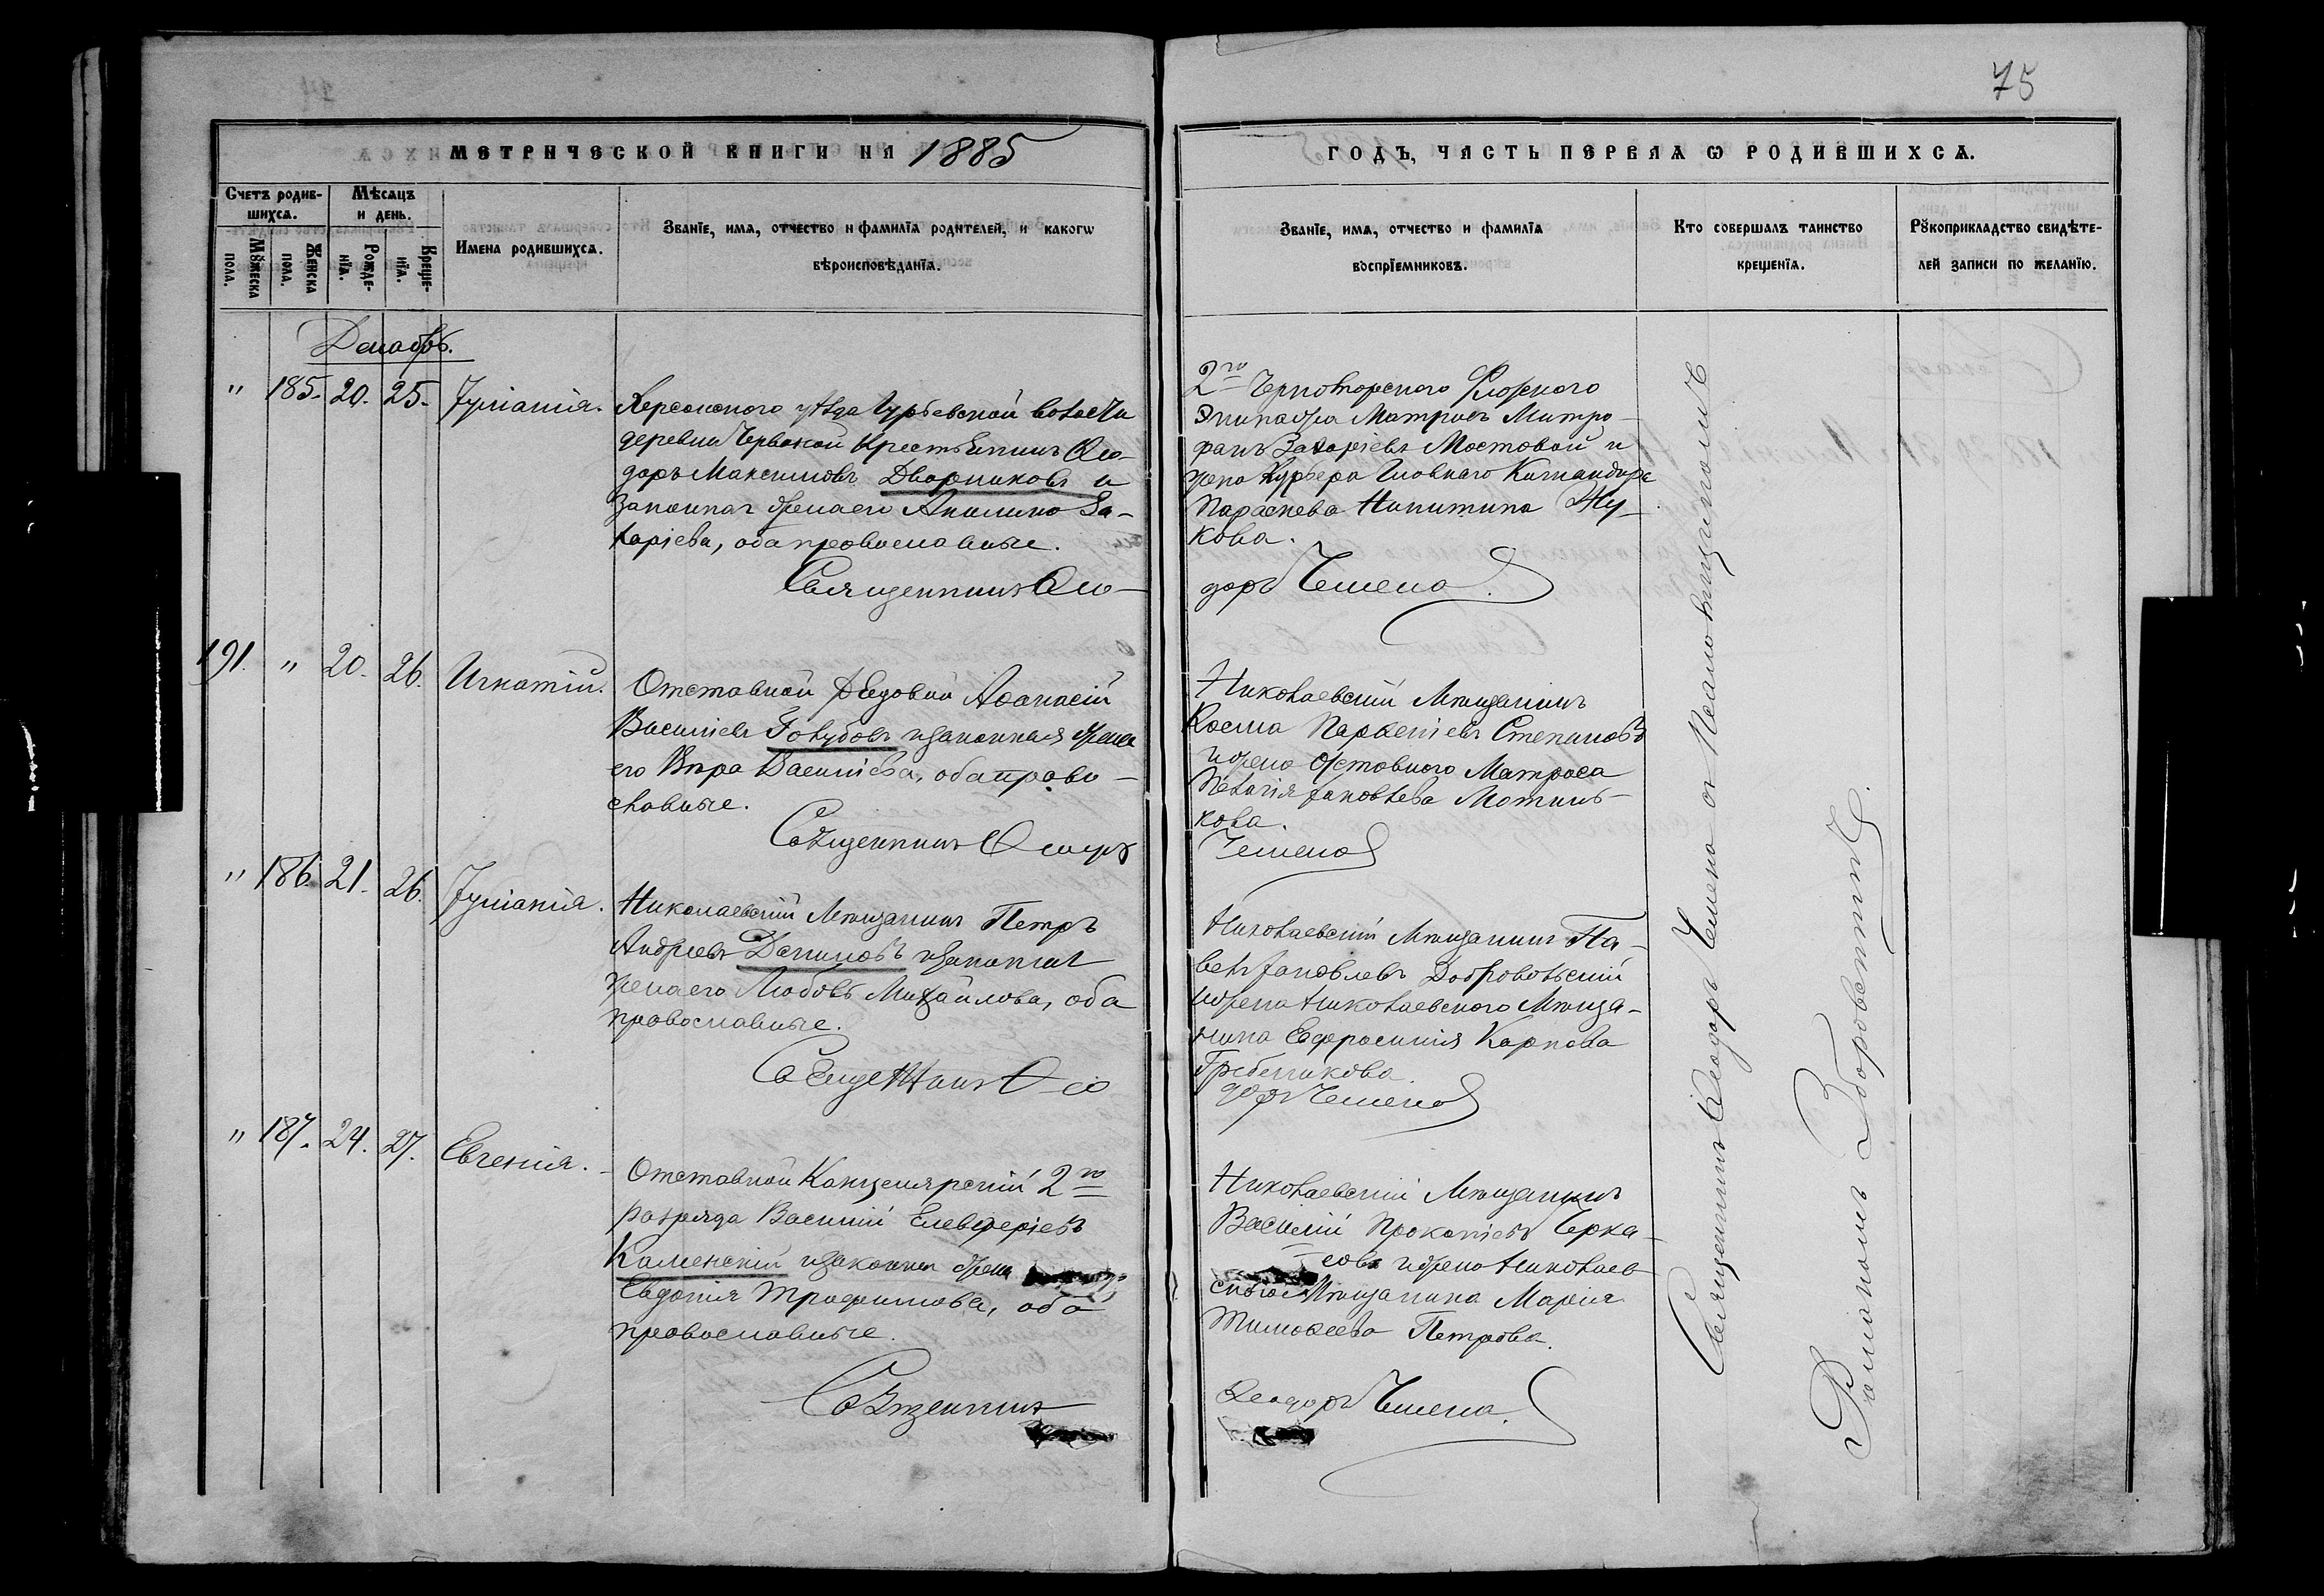 75
МЕТРИЧЕСКОЙ КНИГИ НА 1885
ГОДЪ, ЧАСТЬ ПЕРВАЯ Ѡ РОДИВШИХСѦ.
Счетъ родив-
шихсѧ.
Мѣсѧцъ
и день.
Мꙋжеска
пола.
Женска
пола.
Рожде-
нїѧ.
Креще-
нїѧ.
Имена родившихсѧ.
Званїе, имѧ, отчество и фамилїѧ родителей, и какогѡ
вѣроисповѣданїѧ.
Званїе, имѧ, отчество и фамилїѧ
воспрїемниковъ.
Кто совершалъ таинство
крещенїѧ.
Рꙋкоприкладство свидѣте-
лей записи по желанїю.
Декабрь.
" 185. 20. 25. Іуліанія.
Херсонскаго уѣзда Гурьевской волости
деревни Червоной Крестьянинъ Ѳео-
доръ Максимовъ Дворниковъ и
законная жена его Акилина За-
харіева, оба православные.
Священникъ Ѳео-
2го Черноморского Флотского
Экипажа Матросъ Митро-
фанъ Захаріевъ Мостовой и
жена Курьера Главнаго Командира
Параскева Никитина Жу-
кова.
доръ Чемена
191. " 20. 26. Игнатій.
Отставной Рядовой Аѳанасій
Василіевъ Голубовъ и законная жена
его Вѣра Василіева, оба право-
славные.
Священникъ Ѳеодоръ
Николаевскій Мѣщанинъ
Косма Парѳеніевъ Степановъ
и жена Отставного Матроса
Пелагія Іаковлева Мотинь-
кова.
Чемена
" 186. 21. 26. Іуліанія.
Николаевскій Мѣщанинъ Петръ
Андреевъ Даниловъ и законная
жена его Любовь Михайлова, оба
православные.
Священникъ Ѳео
Николаевскій Мѣщанинъ Па-
велъ Іаковлевъ Добровольскій
и жена Николаевского Мѣща-
нина Евфросинія Карпова
Гребенникова.
доръ Чемена
" 187. 24. 27. Евгенія.
Отставной Канцелярскій 2го
разряда Василій Елевферіевъ
Каменскій и законная жена
Евдокія Трофимова, оба
православные.
Священникъ
Николаевскій Мѣщанинъ
Василій Прокопіевъ Черка-
совъ и жена Николаев-
ского Мѣщанина Марія
Тимоѳеева Петрова.
Ѳеодоръ Чемена.
Священникъ Ѳеодоръ Чемена съ Псаломщикомъ
Романомъ Здоровеннымъ.